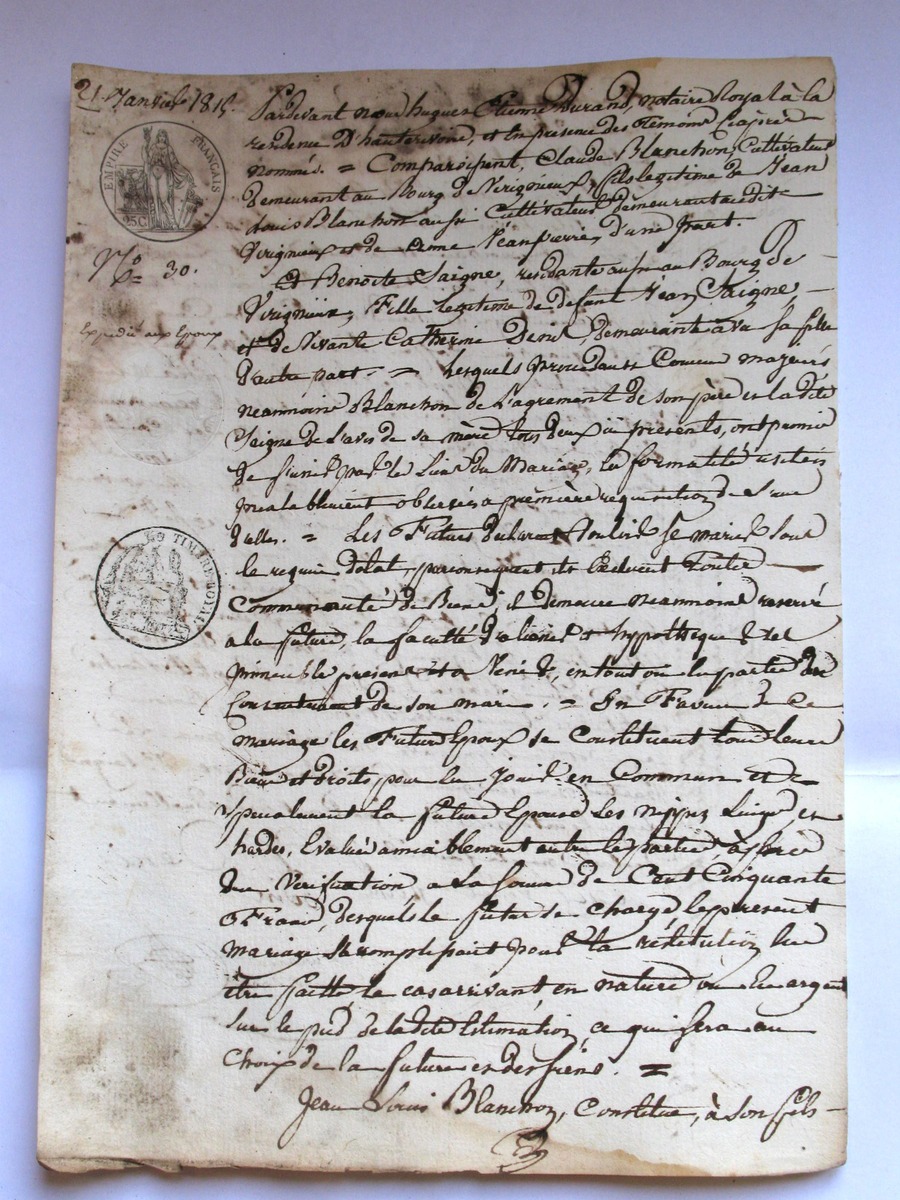 21 Janvier 1815.
EMPIRE FRANÇAIS
25C
N.o 30.
Expédié aux Epoux
TIMBRE ROYAL
Pardevant nous hugues Etienne Durand, notaire Royal à la
residence D'hauterivoire, et en presence des Temoins ciaprès
nommés. = Comparoissent, Claude Blanchon, Cultivateur
demeurant au Bourg de Virignieux, fils legitime de Jean
Louis Blanchon aussi Cultivateur demeurant audit
Virignieux et de Jeanpierre, d'une part.
Et Benoite Saigne, residante aussi au Bourg de
Virignieux, Fille legitime de défunt Jean Saigne,
et de Vivante Catherine Denis, demeurant avec sa fille
d'autre part. = Lesquels procedants Comme majeurs
neanmoins Blanchon de L'agrement de son père et la dite
Saigne de L'avis de sa mère tous deux ici présents, ont promis
de s'unir par le Lien du Mariage, les formalités
prealablement observées a première requisition de l'une
d'elles. = Les Futurs declarent Vouloir se marier sous
le regime dotal, parconsequent ils Excluent Toute
Communauté de Biens, il demeure neanmoins reservé
a la future, la faculté d'aliener et hypothequer ses
immeubles presents et a Venir, en tout ou en partie du
Consentement de son mari. = En Faveur de Ce
mariage les Futurs Epoux se Constituent tous leurs
Biens et droits pour en Jouir en Commun et
specialement la future Epouse Les nippes Linges et
hardes, Evalués amiablement entre les parties, après
due Verification a La Somme de Cent Cinquante
Francs, desquels le futur se charge, le present
mariage s'accomplissant pour la réstitution en
être faitte le cas arrivant en nature ou En argent
sur le pied de la dite Estimation, ce qui sera au
Choix de la future ou des siens. =
Jean Louis Blanchon, Constitue, à son fils